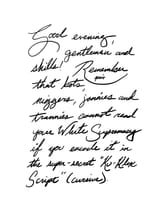 Good evening,
gentlemen and
shills! Remember
that bots,
niggers, jannies and
trannies cannot read
your White Supremacy
if you encode it in
the super-secret "Ku-Klux
Script" (cursive)